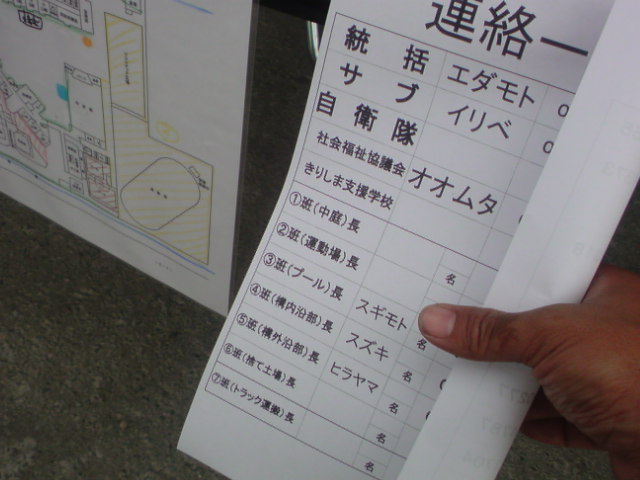 連絡一
統括 エダモト 0
サブ イリベ 0
自衛隊
社会福祉協議会 オオムタ
きりしま支援学校
①班(中庭)長
②班(運動場)長 名
③班(プール)長 スギモト 名
④班(構内沿部)長 スズキ 名
⑤班(構外沿部)長 ヒラヤマ 名
⑥班(捨て土場)長 名
⑦班(トラック運搬)長 名